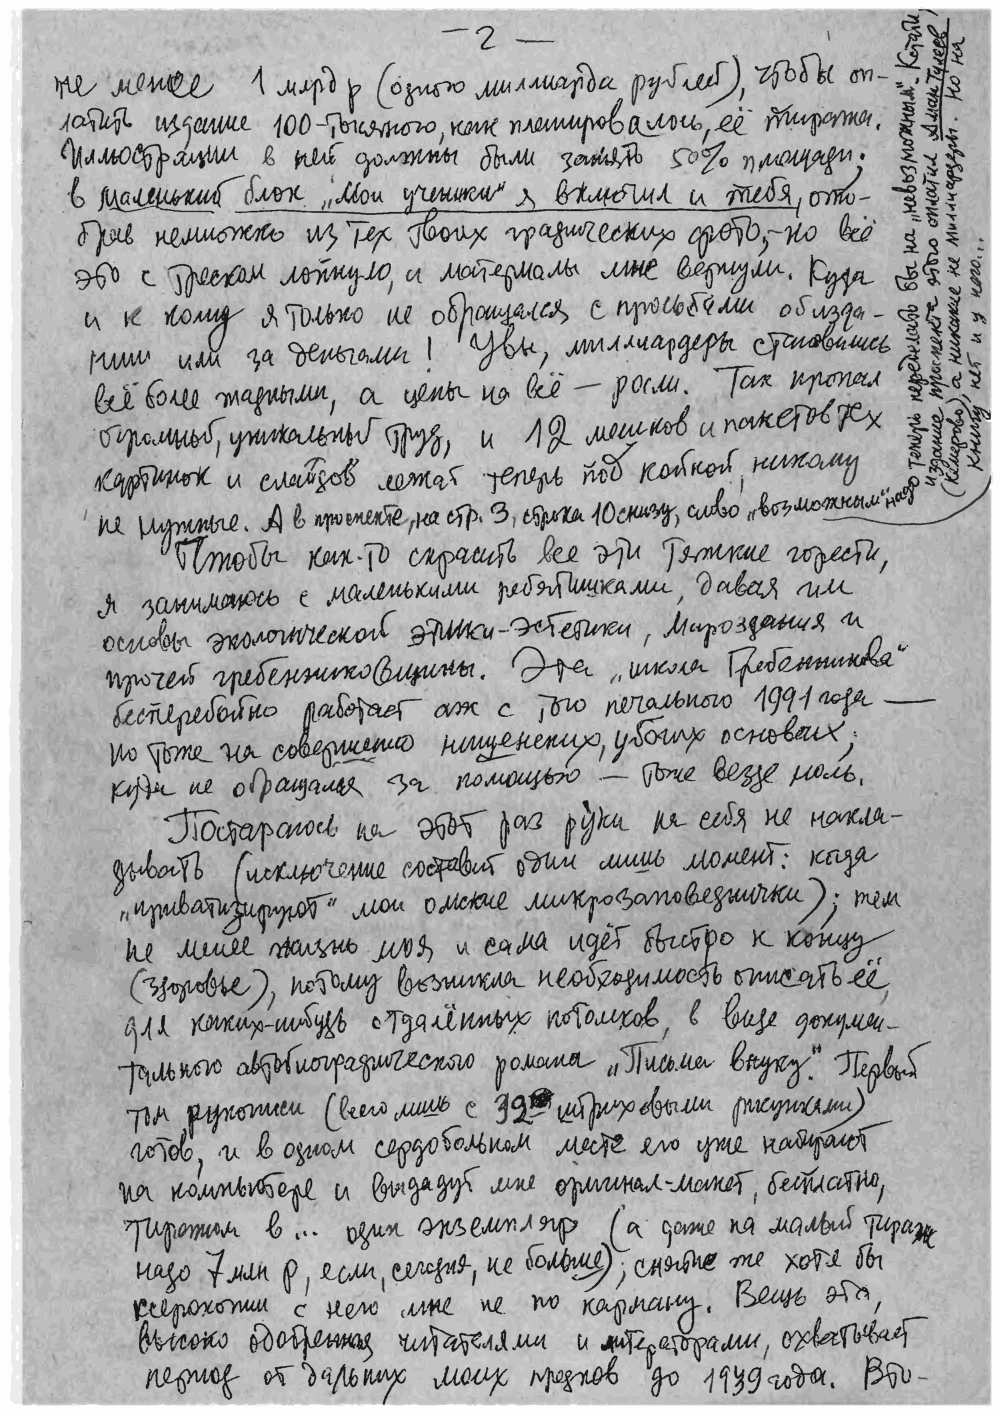 — 2 —
не менее 1 млрд р (одного миллиарда рублей), чтобы оп-
латить издание 100-тысячного, как планировалось, её тиража.
Иллюстрации в ней должны были занять 50% площади;
в маленький блок „Мои ученики" я включил и тебя, ото-
брав немножко из тех твоих графических фото,- но всё
это с треском лопнуло, и материалы мне вернули. Куда
и к кому я только не обращался с просьбами об изда-
нии или за деньгами! Увы, миллиардеры становились
всё более жадными, а цены на всё — росли. Так пропал
огромный, уникальный труд, и 12 мешков и пакетов тех
картинок и слайдов лежат теперь под койкой, никому
не нужные. А в проспекте, на стр. 3, строка 10 снизу, слово „возможным" надо
теперь переделать бы на „невозможным". Кстати,
издание проспекта этого оплатил Аман Тулеев
(Кемерово), а никакие не миллиардеры. Но на
книгу нет и у него...
Чтобы как-то скрасить все эти тяжкие горести,
я занимаюсь с маленькими ребятишками, давая им
основы экологической этики-эстетики, Мироздания и
прочей гребенниковщины. Эта „школа Гребенникова"
бесперебойно работает аж с того печального 1991 года —
но тоже на совершенно нищенских, убогих основах;
куда не обращался за помощью — тоже везде ноль.
Постараюсь на этот раз руки на себя не накла-
дывать (исключение составит один лишь момент: когда
„приватизируют" мои омские микрозаповеднички); тем
не менее жизнь моя и сама идёт быстро к концу
(здоровье), потому возникла необходимость описать её,
для каких-нибудь отдалённых потомков, в виде докумен-
тального автобиографического романа „Письма внуку". Первый
том рукописи (всего лишь с 39 штриховыми рисунками)
готов, и в одном сердобольном месте его уже набирают
на компьютере и выдадут мне оригинал-макет, бесплатно,
тиражом в... один экземпляр (а даже на малый тираж
надо 7 млн р, если, сегодня, не больше); снятие же хотя бы
ксерокопии с него мне не по карману. Вещь эта,
высоко одобренная читателями и литераторами, охватывает
период от дальних моих предков до 1939 года. Вто-